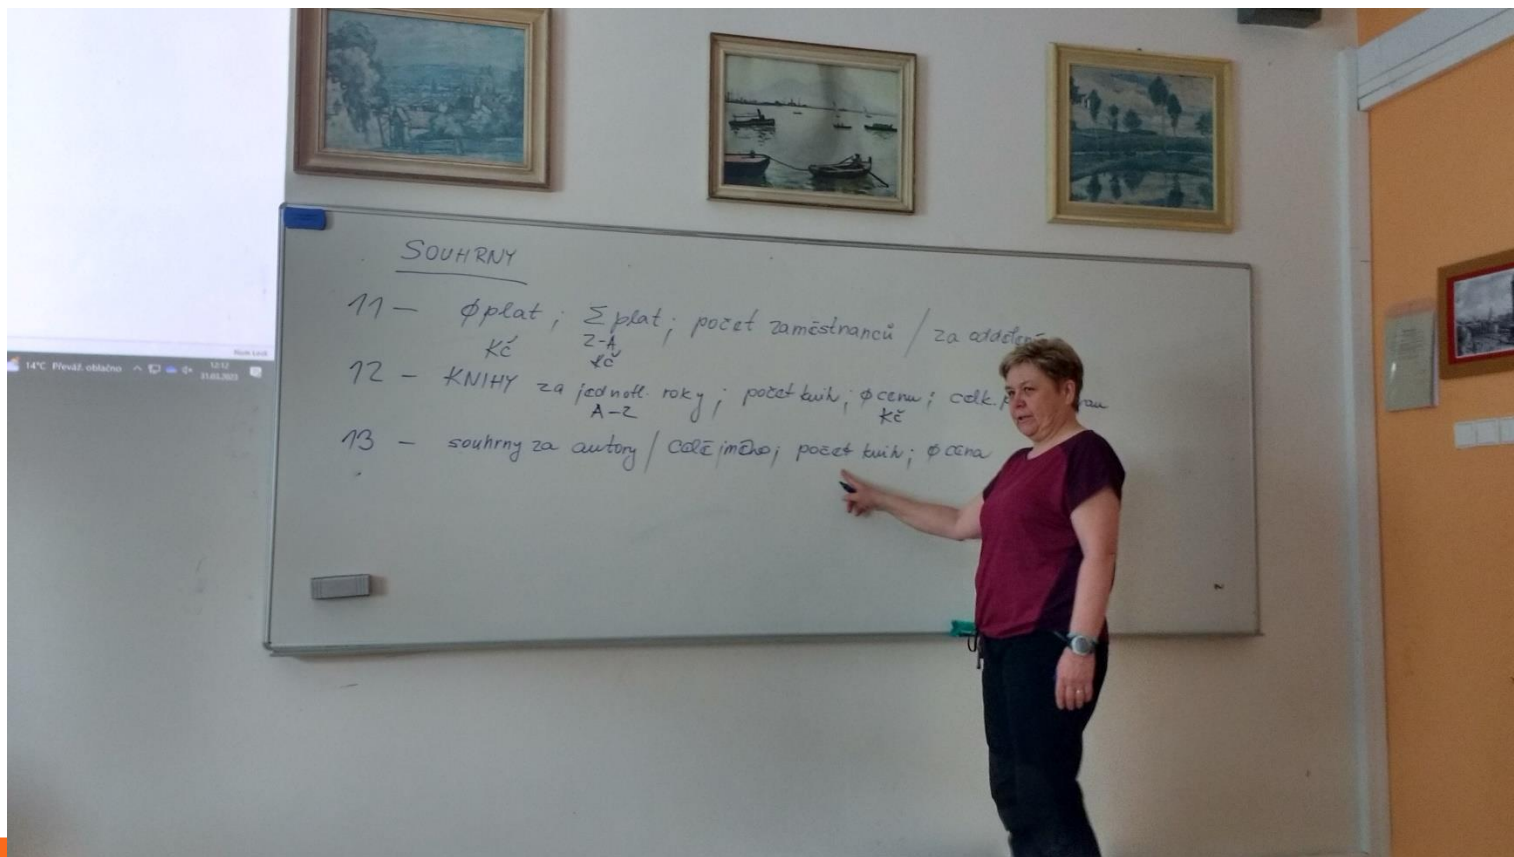 SOUHRNY
11 – φ plat ; Σ plat ; počet zaměstnanců / za oddělení
Kč Z-A
Kč
12 – KNIHY za jednotl. roky ; počet knih ; φ cenu ; celk.
A-Z Kč
13 – souhrny za autory / celé jméno ; počet knih ; φ cena
14°C Převáž. oblačno 12:12
31.03.2023